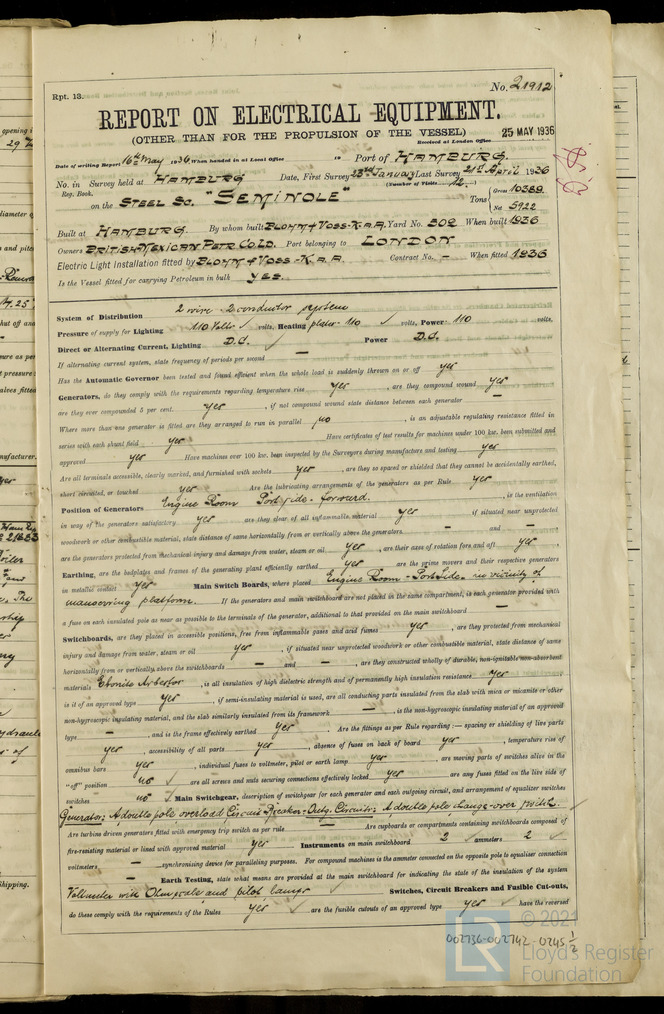 Rpt. 13.
No. 21912
REPORT ON ELECTRICAL EQUIPMENT.
(OTHER THAN FOR THE PROPULSION OF THE VESSEL)
25 MAY 1936
Received at London Office
Date of writing Report 16th May 1936 When handed in at Local Office 19 Port of HAMBURG.
No. in Survey held at HAMBURG Date, First Survey 23rd January Last Survey 21st April 1936
Reg. Book. (Number of Visits 12.)
on the STEEL SC. "SEMINOLE" Tons { Gross 10389 Net 5922
Built at HAMBURG. By whom built BLOHM & VOSS-K.a.A. Yard No. 502 When built 1936
Owners BRITISH-MEXICAN PETR CO. LD. Port belonging to LONDON
Electric Light Installation fitted by BLOHM & VOSS-K.a.A Contract No. - When fitted 1936
Is the Vessel fitted for carrying Petroleum in bulk YES.
System of Distribution 2 wire - 2 conductor system
Pressure of supply for Lighting 110 Volts volts, Heating 110 volts, Power 110 volts,
Direct or Alternating Current, Lighting D.C. Power D.C.
If alternating current, state frequency of periods per second -
Has the Automatic Governor been tested and found efficient when the whole load is suddenly thrown on or off yes
Generators, do they comply with the requirements regarding temperature rise yes, are they compound wound yes
are they over compounded 5 per cent. yes, if not compound wound state distance between each generator -
Where more than one generator is fitted are they arranged to run in parallel no, is an adjustable regulating resistance fitted in
series with each shunt field yes Have certificates of test results for machines under 100 kw. been submitted and
approved yes Have machines over 100 kw. been inspected by the Surveyors during manufacture and testing yes
Are all terminals accessible, clearly marked, and furnished with sockets yes, are they so spaced or shielded that they cannot be accidentally earthed,
short circuited, or touched yes Are the lubricating arrangements of the generators as per Rule yes
Position of Generators Engine Room Port side - forward., is the ventilation
in way of the generators satisfactory yes are they clear of all inflammable material yes if situated near unprotected
woodwork or other combustible material, state distance of same horizontally from or vertically above the generators - and -
are the generators protected from mechanical injury and damage from water, steam or oil yes, are their axes of rotation fore and aft yes,
Earthing, are the bedplates and frames of the generating plant efficiently earthed yes are the prime movers and their respective generators
in metallic contact yes Main Switch Boards, where placed Engine Room - Port side, in vicinity of
manoeuvring platform. If the generators and main switchboard are not placed in the same compartment, is each generator provided with
a fuse on each insulated pole as near as possible to the terminals of the generator, additional to that provided on the main switchboard -
Switchboards, are they placed in accessible positions, free from inflammable gases and acid fumes yes, are they protected from mechanical
injury and damage from water, steam or oil yes, if situated near unprotected woodwork or other combustible material, state distance of same
horizontally from or vertically above the switchboards - and -, are they constructed wholly of durable, non-ignitable non-absorbent
materials Ebonite Asbestor, is all insulation of high dielectric strength and of permanently high insulation resistance yes
is it of an approved type yes, if semi-insulating material is used, are all conducting parts insulated from the slab with mica or micanite or other
non-hygroscopic insulating material, and the slab similarly insulated from its framework -, is the non-hygroscopic insulating material of an approved
type -, and is the frame effectively earthed yes Are the fittings as per Rule regarding:- spacing or shielding of live parts
yes, accessibility of all parts yes, absence of fuses on back of board yes, temperature rise of
omnibus bars yes, individual fuses to voltmeter, pilot or earth lamp yes, are moving parts of switches alive in the
"off" position no are all screws and nuts securing connections effectively locked yes are any fuses fitted on the live side of
switches no Main Switchgear, description of switchgear for each generator and each outgoing circuit, and arrangement of equaliser switches
Generators: A double pole overload Circuit Breaker - Outg. Circuits: A double pole change-over switch.
Are turbine driven generators fitted with emergency trip switch as per rule - Are cupboards or compartments containing switchboards composed of
fire-resisting material or lined with approved material yes Instruments on main switchboard 2 ammeters 2
voltmeters - synchronising device for paralleling purposes. For compound machines is the ammeter connected on the opposite pole to equaliser connection
- Earth Testing, state what means are provided at the main switchboard for indicating the state of the insulation of the system
Voltmeter with Ohmscale and pilot lamps Switches, Circuit Breakers and Fusible Cut-outs,
do these comply with the requirements of the Rules yes, are the fusible cutouts of an approved type yes have the reversed
002736-002742-0245 1/2
LR
© 2021
Lloyd's Register
Foundation